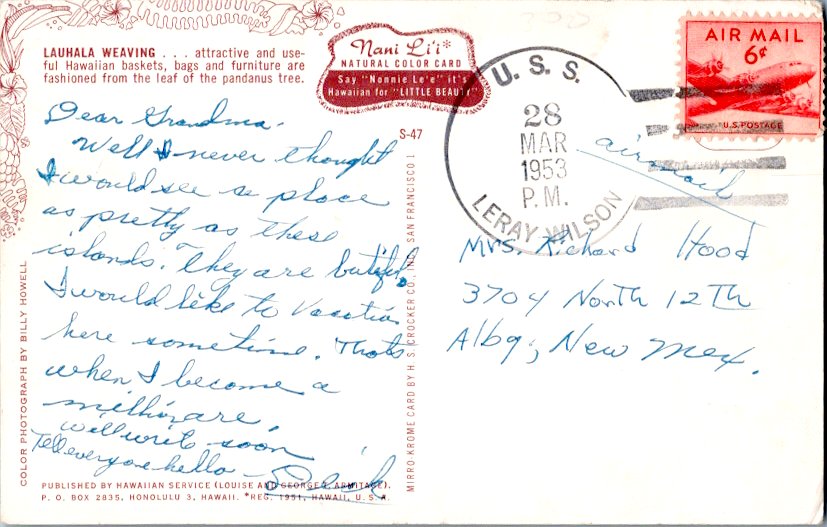 LAUHALA WEAVING . . . attractive and use-
ful Hawaiian baskets, bags and furniture are
fashioned from the leaf of the pandanus tree.
Nani Li'i*
NATURAL COLOR CARD
Say "Nonnie Le'e" it's
Hawaiian for "LITTLE BEAUTY"
S-47
Dear Grandma.
Well I never thought
I would see a place
as pretty as these
islands. They are butiful.
I would like to Vacation
here sometime. Thats
when I become a
millionare.
will write soon
Tell everyone hello —
Dick
PUBLISHED BY HAWAIIAN SERVICE (LOUISE AND GEORGE T. ARMITAGE).
P. O. BOX 2835, HONOLULU 3, HAWAII. *REG. 1951, HAWAII, U. S. A.
COLOR PHOTOGRAPH BY BILLY HOWELL
MIRRO-KROME CARD BY H. S. CROCKER CO., INC. SAN FRANCISCO 1
U. S. S.
28
MAR
1953
P. M.
LERAY WILSON
AIR MAIL
6¢
U.S. POSTAGE
airmail
Mrs. Richard Hood
3704 North 12Th
Albq; New Mex.